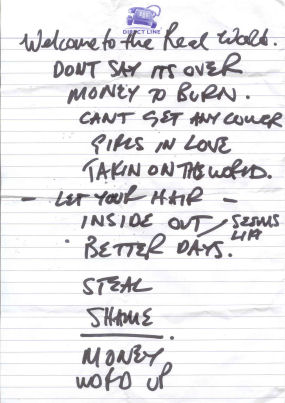 DIRECT LINE
Welcome to the Real World.
DONT SAY ITS OVER
MONEY TO BURN.
CANT GET ANY LOWER
GIRLS IN LOVE
TAKIN ON THE WORLD.
- LET YOUR HAIR -
INSIDE OUT / 
BETTER DAYS.
STEAL
SHAME
MONEY
WORD UP